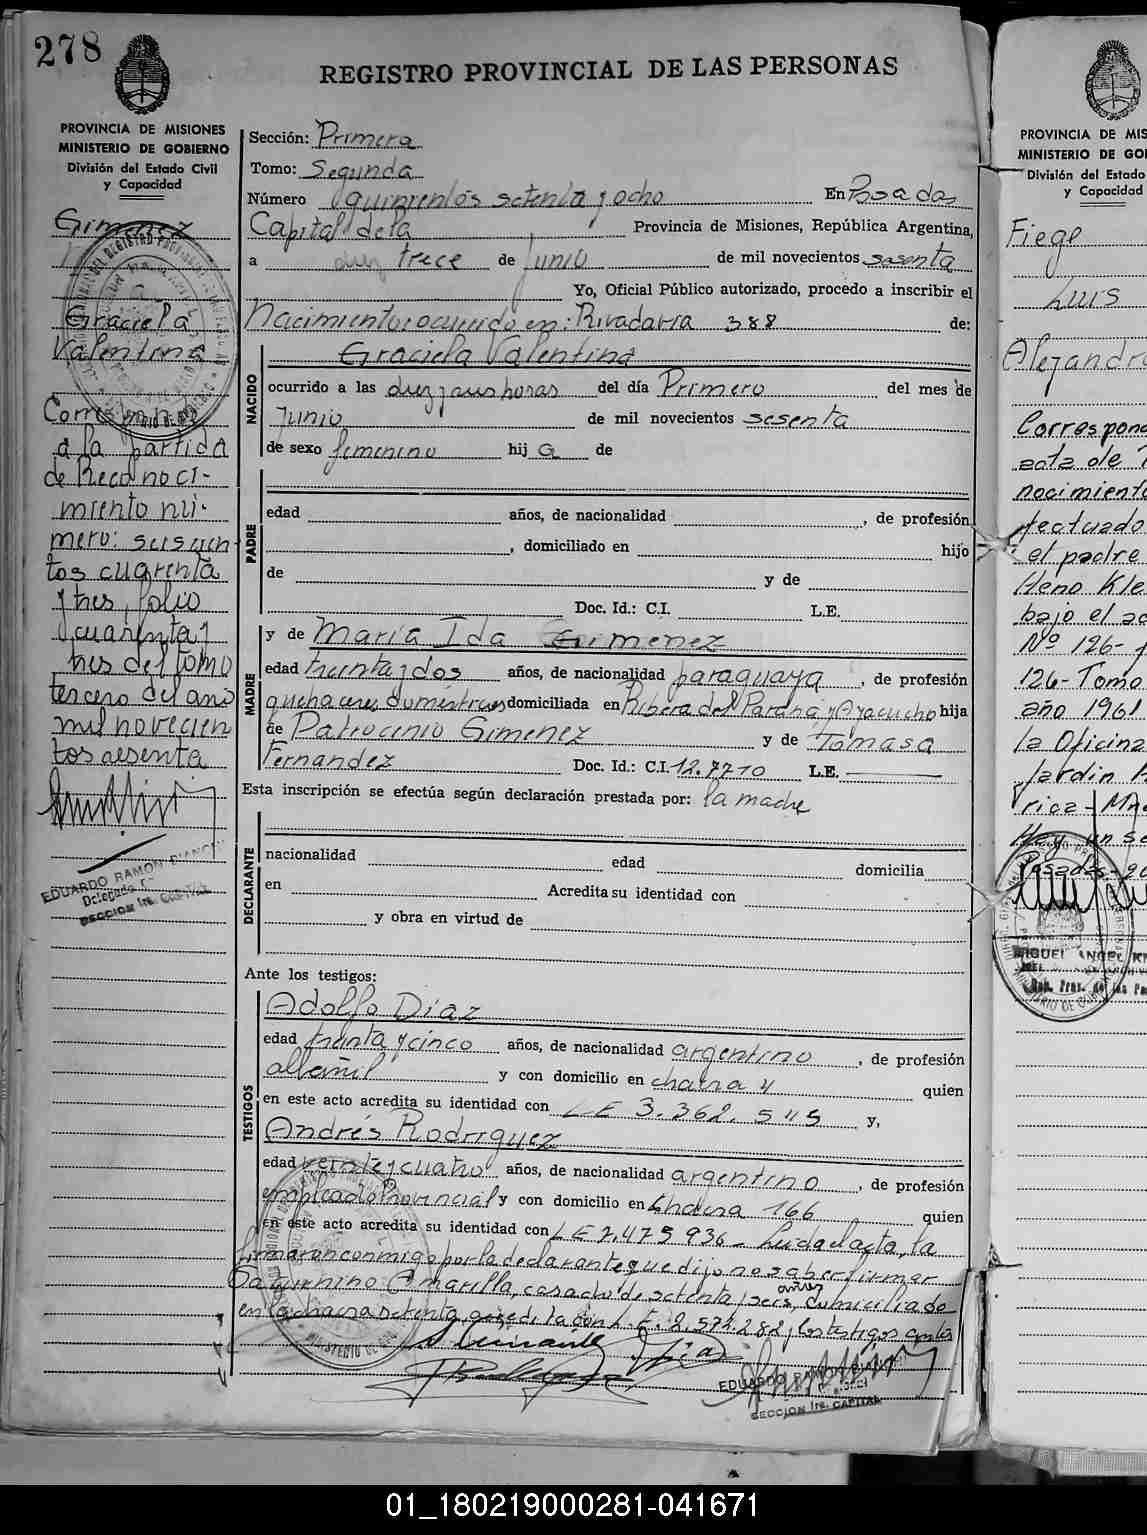 278
REGISTRO PROVINCIAL DE LAS PERSONAS
PROVINCIA DE MISIONES
MINISTERIO DE GOBIERNO
División del Estado Civil
y Capacidad
Gimenez
Graciela
Valentina
Corresponde
a la partida
de Reconoci-
miento nú-
mero: seiscien
tos cuarenta
y tres, folio
cuarenta y
tres del tomo
tercero del año
mil novecien
tos sesenta
EDUARDO RAMON BIANCHI
Delegado
SECCION 1ra. CAPITAL
Sección: Primera
Tomo: Segundo
Número quinientos setenta y ocho En Posadas
Capital de la Provincia de Misiones, República Argentina,
a trece de Junio de mil novecientos sesenta
Yo, Oficial Público autorizado, procedo a inscribir el
Nacimiento: ocurrido en: Rivadavia 388 de:
NACIDO
Graciela Valentina
ocurrido a las diez y seis horas del día Primero del mes de
Junio de mil novecientos sesenta
de sexo femenino hij a de
PADRE
edad años, de nacionalidad , de profesión
, domiciliado en hijo
de y de
Doc. Id.: C.I. L.E.
MADRE
y de María Ida Gimenez
edad treinta y dos años, de nacionalidad paraguaya , de profesión
quehaceres domésticos domiciliada en Ribera del Paraná y Ayacucho hija
de Patrocinio Gimenez y de Tomasa
Fernandez Doc. Id.: C.I. 12.7710 L.E.
Esta inscripción se efectúa según declaración prestada por: la madre
DECLARANTE
nacionalidad edad domicilia
en Acredita su identidad con
y obra en virtud de
Ante los testigos:
TESTIGOS
Adolfo Diaz
edad treinta y cinco años, de nacionalidad argentino , de profesión
albañil y con domicilio en chacra 4 quien
en este acto acredita su identidad con LE 3.362.545 y,
Andrés Rodriguez
edad veinte y cuatro años, de nacionalidad argentino , de profesión
empleado Provincial y con domicilio en Chacra 166 quien
en este acto acredita su identidad con LE 7.475.936 - Leida el acta, la
firmaron conmigo por la declarante que dijo no saber firmar
Saturnino Amarilla, casado de setenta y seis años, domiciliado
en la chacra setenta L.E. 2.574.282 y los testigos
EDUARDO RAMON BIANCHI
SECCION 1ra. CAPITAL
PROVINCIA DE MIS
MINISTERIO DE GO
División del Estado
y Capacidad
Fiege
Luis
Alejandro
Correspond
acta de
nocimiento
fectuado
el padre
Heno Kle
bajo el ac
Nº 126-
126- Tomo
año 1961
la Oficina
Jardin
rica -
Hay un se
MIGUEL ANGEL
01_180219000281-041671